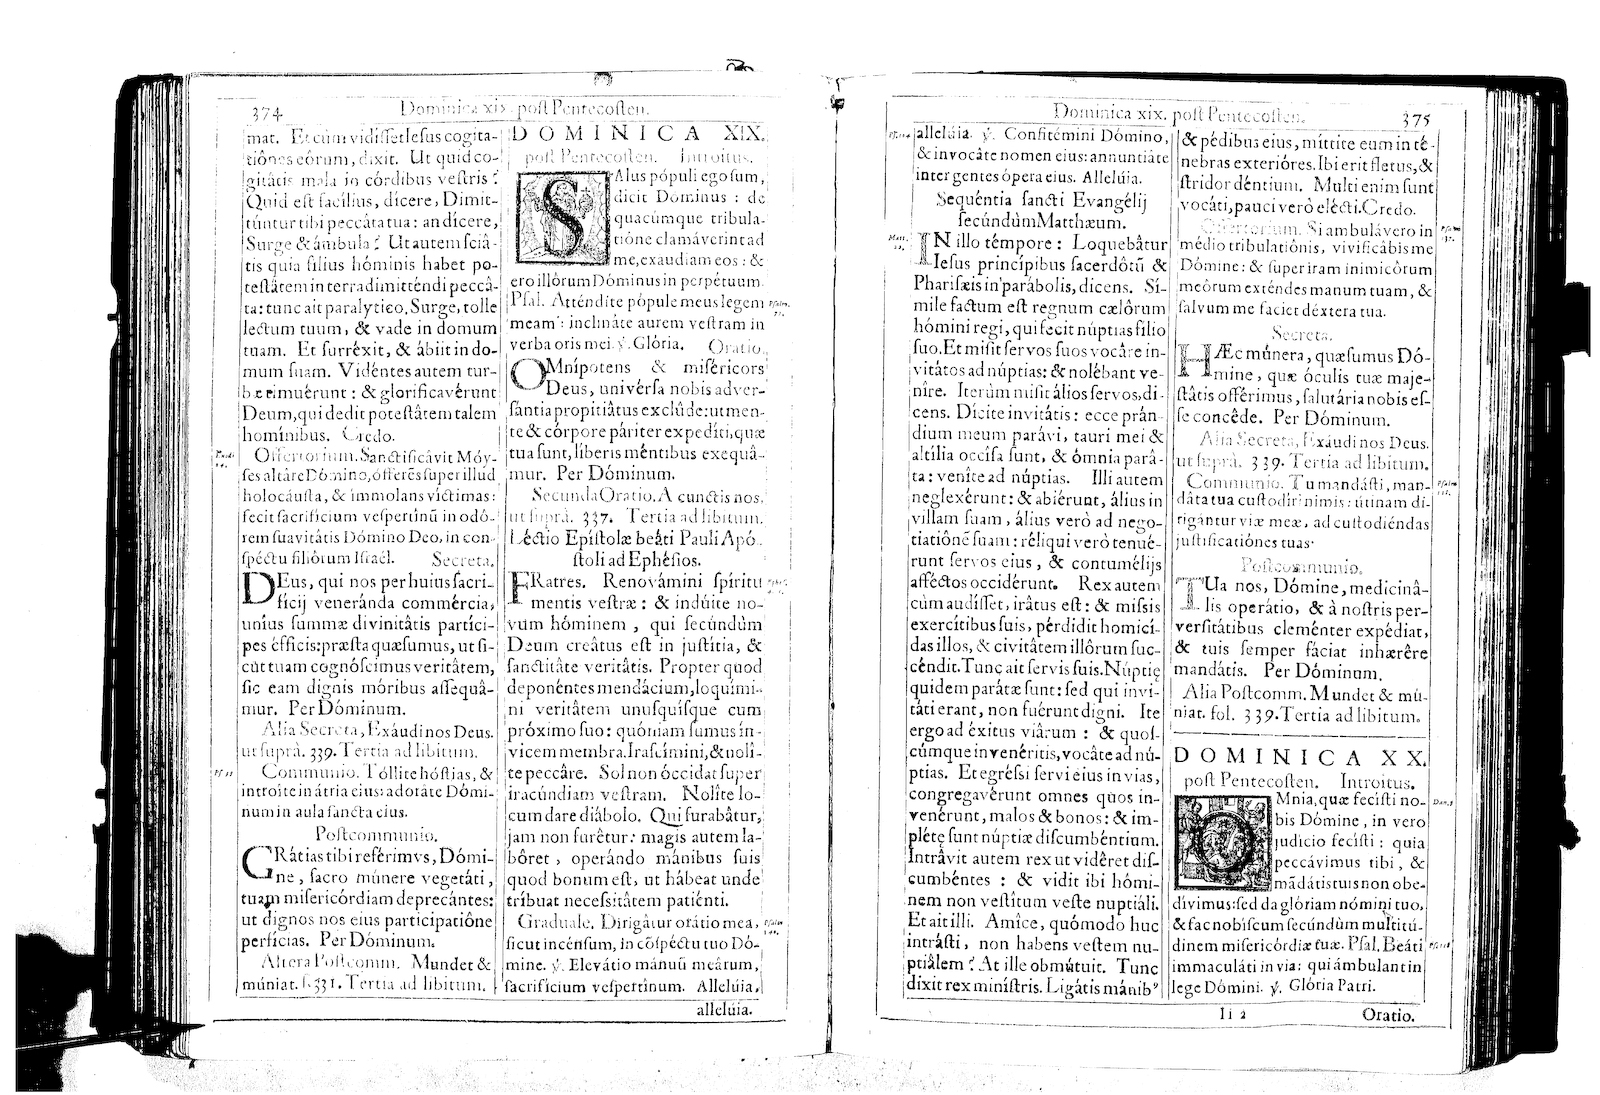 374 Dominica xix. post Pentecosten.
mat. Et cùm vidisset Iesus cogita-
tiônes eórum, dixit. Ut quid co-
gitâtis mala in córdibus vestris?
Quid est facílius, dícere, Dimit-
túntur tibi peccâta tua: an dícere,
Surge & âmbula? Ut autem sciâ-
tis quia filius hóminis habet po-
testâtem in terra dimitténdi peccâ-
ta: tunc ait paralytico, Surge, tolle
lectum tuum, & vade in domum
tuam. Et surréxit, & ábiit in do-
mum suam. Vidéntes autem tur-
bæ timuérunt: & glorificavérunt
Deum, qui dedit potestâtem talem
homínibus. Credo.
Offertorium. Sanctificávit Móy-
ses altâre Dómino, offerẽs super illud
holocáusta, & immolans víctimas:
fecit sacrificium vespertínũ in odó-
rem suavitátis Dómino Deo, in con-
spéctu filiórum Israél. Secreta.
DEus, qui nos per huius sacri-
fícij veneránda commércia,
uníus summæ divinitâtis partíci-
pes éfficis: præsta quæsumus, ut si-
cùt tuam cognóscimus veritâtem,
sic eam dignis móribus assequâ-
mur. Per Dóminum.
Alia Secreta, Exáudi nos Deus.
ut suprà. 339. Tertia ad libitum.
Communio. Tóllite hóstias, &
introite in átria eius: adoráte Dómi-
num in aula sancta eius.
Postcommunio.
GRâtias tibi reférimvs, Dómi-
ne, sacro múnere vegetáti,
tuam misericórdiam deprecántes:
ut dignos nos eius participatiône
perfícias. Per Dóminum.
Altera Postcomm. Mundet &
múniat. f. 331. Tertia ad libitum.
DOMINICA XIX.
post Pentecosten. Introitus.
SAlus pópuli ego sum,
dicit Dóminus: de
quacúmque tribula-
tióne clamáverint ad
me, exaudiam eos: &
ero illórum Dóminus in perpétuum.
Psal. Atténdite pópule meus legem
meam: inclináte aurem vestram in
verba oris mei. ℣. Glória. Oratio.
OMnípotens & miséricors
Deus, univérsa nobis adver-
sántia propitiâtus exclúde: ut men-
te & córpore páriter expedíti, quæ
tua sunt, líberis méntibus exequâ-
mur. Per Dóminum.
Secunda Oratio. A cunctis nos.
ut suprà. 337. Tertia ad libitum.
Léctio Epístolæ beáti Pauli Apó-
stoli ad Ephésios.
FRatres. Renovámini spíritu
mentis vestræ: & indúite no-
vum hóminem, qui secúndùm
Deum creâtus est in justítia, &
sanctitâte veritâtis. Propter quod
deponéntes mendácium, loquími-
ni veritâtem unusquísque cum
próximo suo: quóniam sumus ín-
vicem membra. Irascímini, & nolî-
te peccâre. Sol non óccidat super
iracúndiam vestram. Nolîte lo-
cum dare diábolo. Qui furabâtur,
jam non furêtur: magis autem la-
bôret, operándo mánibus suis
quod bonum est, ut hábeat unde
tríbuat necessitâtem patiénti.
Graduale. Dirigâtur orátio mea,
sicut incénsum, in cõspéctu tuo Dó-
mine. ℣. Elevátio mánuũ meârum,
sacrificium vespertinum. Allelúia,
allelúia.
Dominica xix. post Pentecosten. 375
allelúia. ℣. Confitémini Dómino,
& invocâte nomen eius: annuntiáte
inter gentes ópera eius. Allelúia.
Sequéntia sancti Evangélij
secúndùm Matthæum.
IN illo témpore: Loquebâtur
Iesus princípibus sacerdôtũ &
Pharisæis in parábolis, dicens. Sí-
mile factum est regnum cælôrum
hómini regi, qui fecit núptias filio
suo. Et misit servos suos vocâre in-
vitâtos ad núptias: & nolébant ve-
nîre. Iterùm misit álios servos, di-
cens. Dícite invitátis: ecce prân-
dium meum parávi, tauri mei &
altília occísa sunt, & ómnia parâ-
ta: venîte ad núptias. Illi autem
neglexérunt: & abiérunt, álius in
villam suam, álius verò ad nego-
tiatiônẽ suam: réliqui verò tenué-
runt servos eius, & contumélijs
afféctos occidérunt. Rex autem
cùm audísset, irâtus est: & missis
exercítibus suis, pérdidit homicí-
das illos, & civitâtem illôrum suc-
céndit. Tunc ait servis suis. Núptię
quidem parátæ sunt: sed qui invi-
táti erant, non fuérunt digni. Ite
ergo ad éxitus viârum: & quos-
cúmque invenéritis, vocâte ad nú-
ptias. Et egréssi servi eius in vias,
congregavérunt omnes quos in-
venérunt, malos & bonos: & im-
plétę sunt núptiæ discumbéntium.
Intrâvit autem rex ut vidêret dis-
cumbéntes: & vidit ibi hómi-
nem non vestítum veste nuptiáli.
Et ait illi. Amîce, quómodo huc
intrásti, non habens vestem nu-
ptiâlem? At ille obmútuit. Tunc
dixit rex minístris. Ligátis mánib⁹
& pédibus eius, míttite eum in té-
nebras exteriôres. Ibi erit fletus, &
stridor déntium. Multi enim sunt
vocáti, pauci verò elécti. Credo.
Offertorium. Si ambulávero in
médio tribulatiónis, vivificâbis me
Dómine: & super iram inimicórum
meórum exténdes manum tuam, &
salvum me faciet déxtera tua.
Secreta.
HÆc múnera, quæsumus Dó-
mine, quæ óculis tuæ maje-
státis offérimus, salutária nobis es-
se concêde. Per Dóminum.
Alia Secreta, Exáudi nos Deus.
ut suprà. 339. Tertia ad libitum.
Communio. Tu mandásti, man-
dáta tua custodiri nimis: útinam di-
rigántur viæ meæ, ad custodiéndas
justificatiónes tuas.
Postcommunio.
TUa nos, Dómine, medicinâ-
lis operátio, & à nostris per-
versitâtibus cleménter expédiat,
& tuis semper fáciat inhærêre
mandátis. Per Dóminum.
Alia Postcomm. Mundet & mú-
niat. fol. 339. Tertia ad libitum.
DOMINICA XX.
post Pentecosten. Introitus.
OMnia, quæ fecisti no-
bis Dómine, in vero
judicio fecísti: quia
peccávimus tibi, &
mãdátis tuis non obe-
dívimus: sed da glóriam nómini tuo,
& fac nobíscum secúndùm multitú-
dinem misericórdiæ tuæ. Psal. Beáti
immaculáti in via: qui ámbulant in
lege Dómini. ℣. Glória Patri.
Ii 2 Oratio.